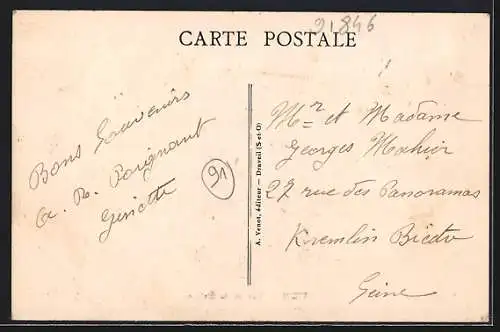 91846
CARTE POSTALE
Bons Souvenirs
Poignant
Ginette
91
A. Venot, éditeur — Draveil (S-et-O)
Mr et Madame
Georges Mahier
27 rue des Panoramas
Kremlin Bicêtre
Seine